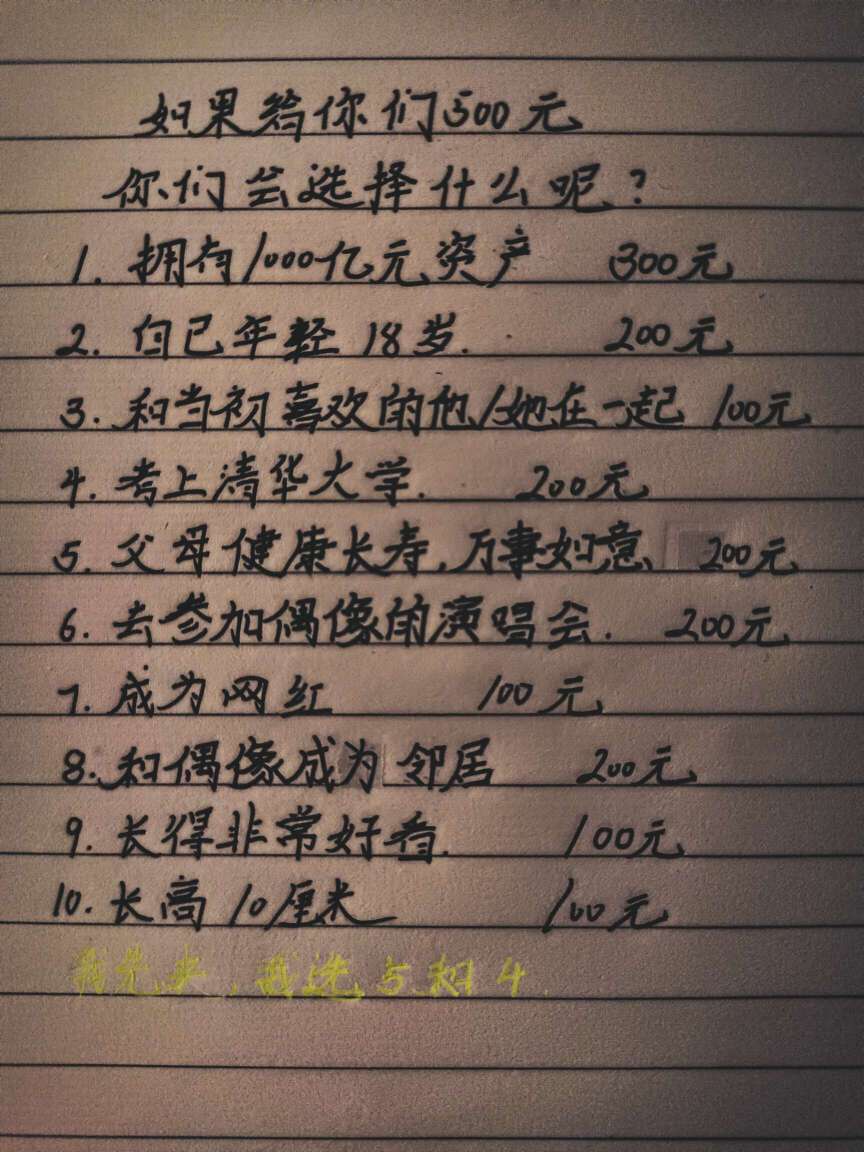 如果给你们500元
你们会选择什么呢?
1. 拥有1000亿元资产 300元
2. 自己年轻18岁. 200元
3. 和当初喜欢的他/她在一起 100元
4. 考上清华大学. 200元
5. 父母健康长寿,万事如意 200元
6. 去参加偶像的演唱会. 200元
7. 成为网红 100元
8. 和偶像成为邻居 200元
9. 长得非常好看. 100元
10. 长高10厘米 100元
我先来,我选5和4